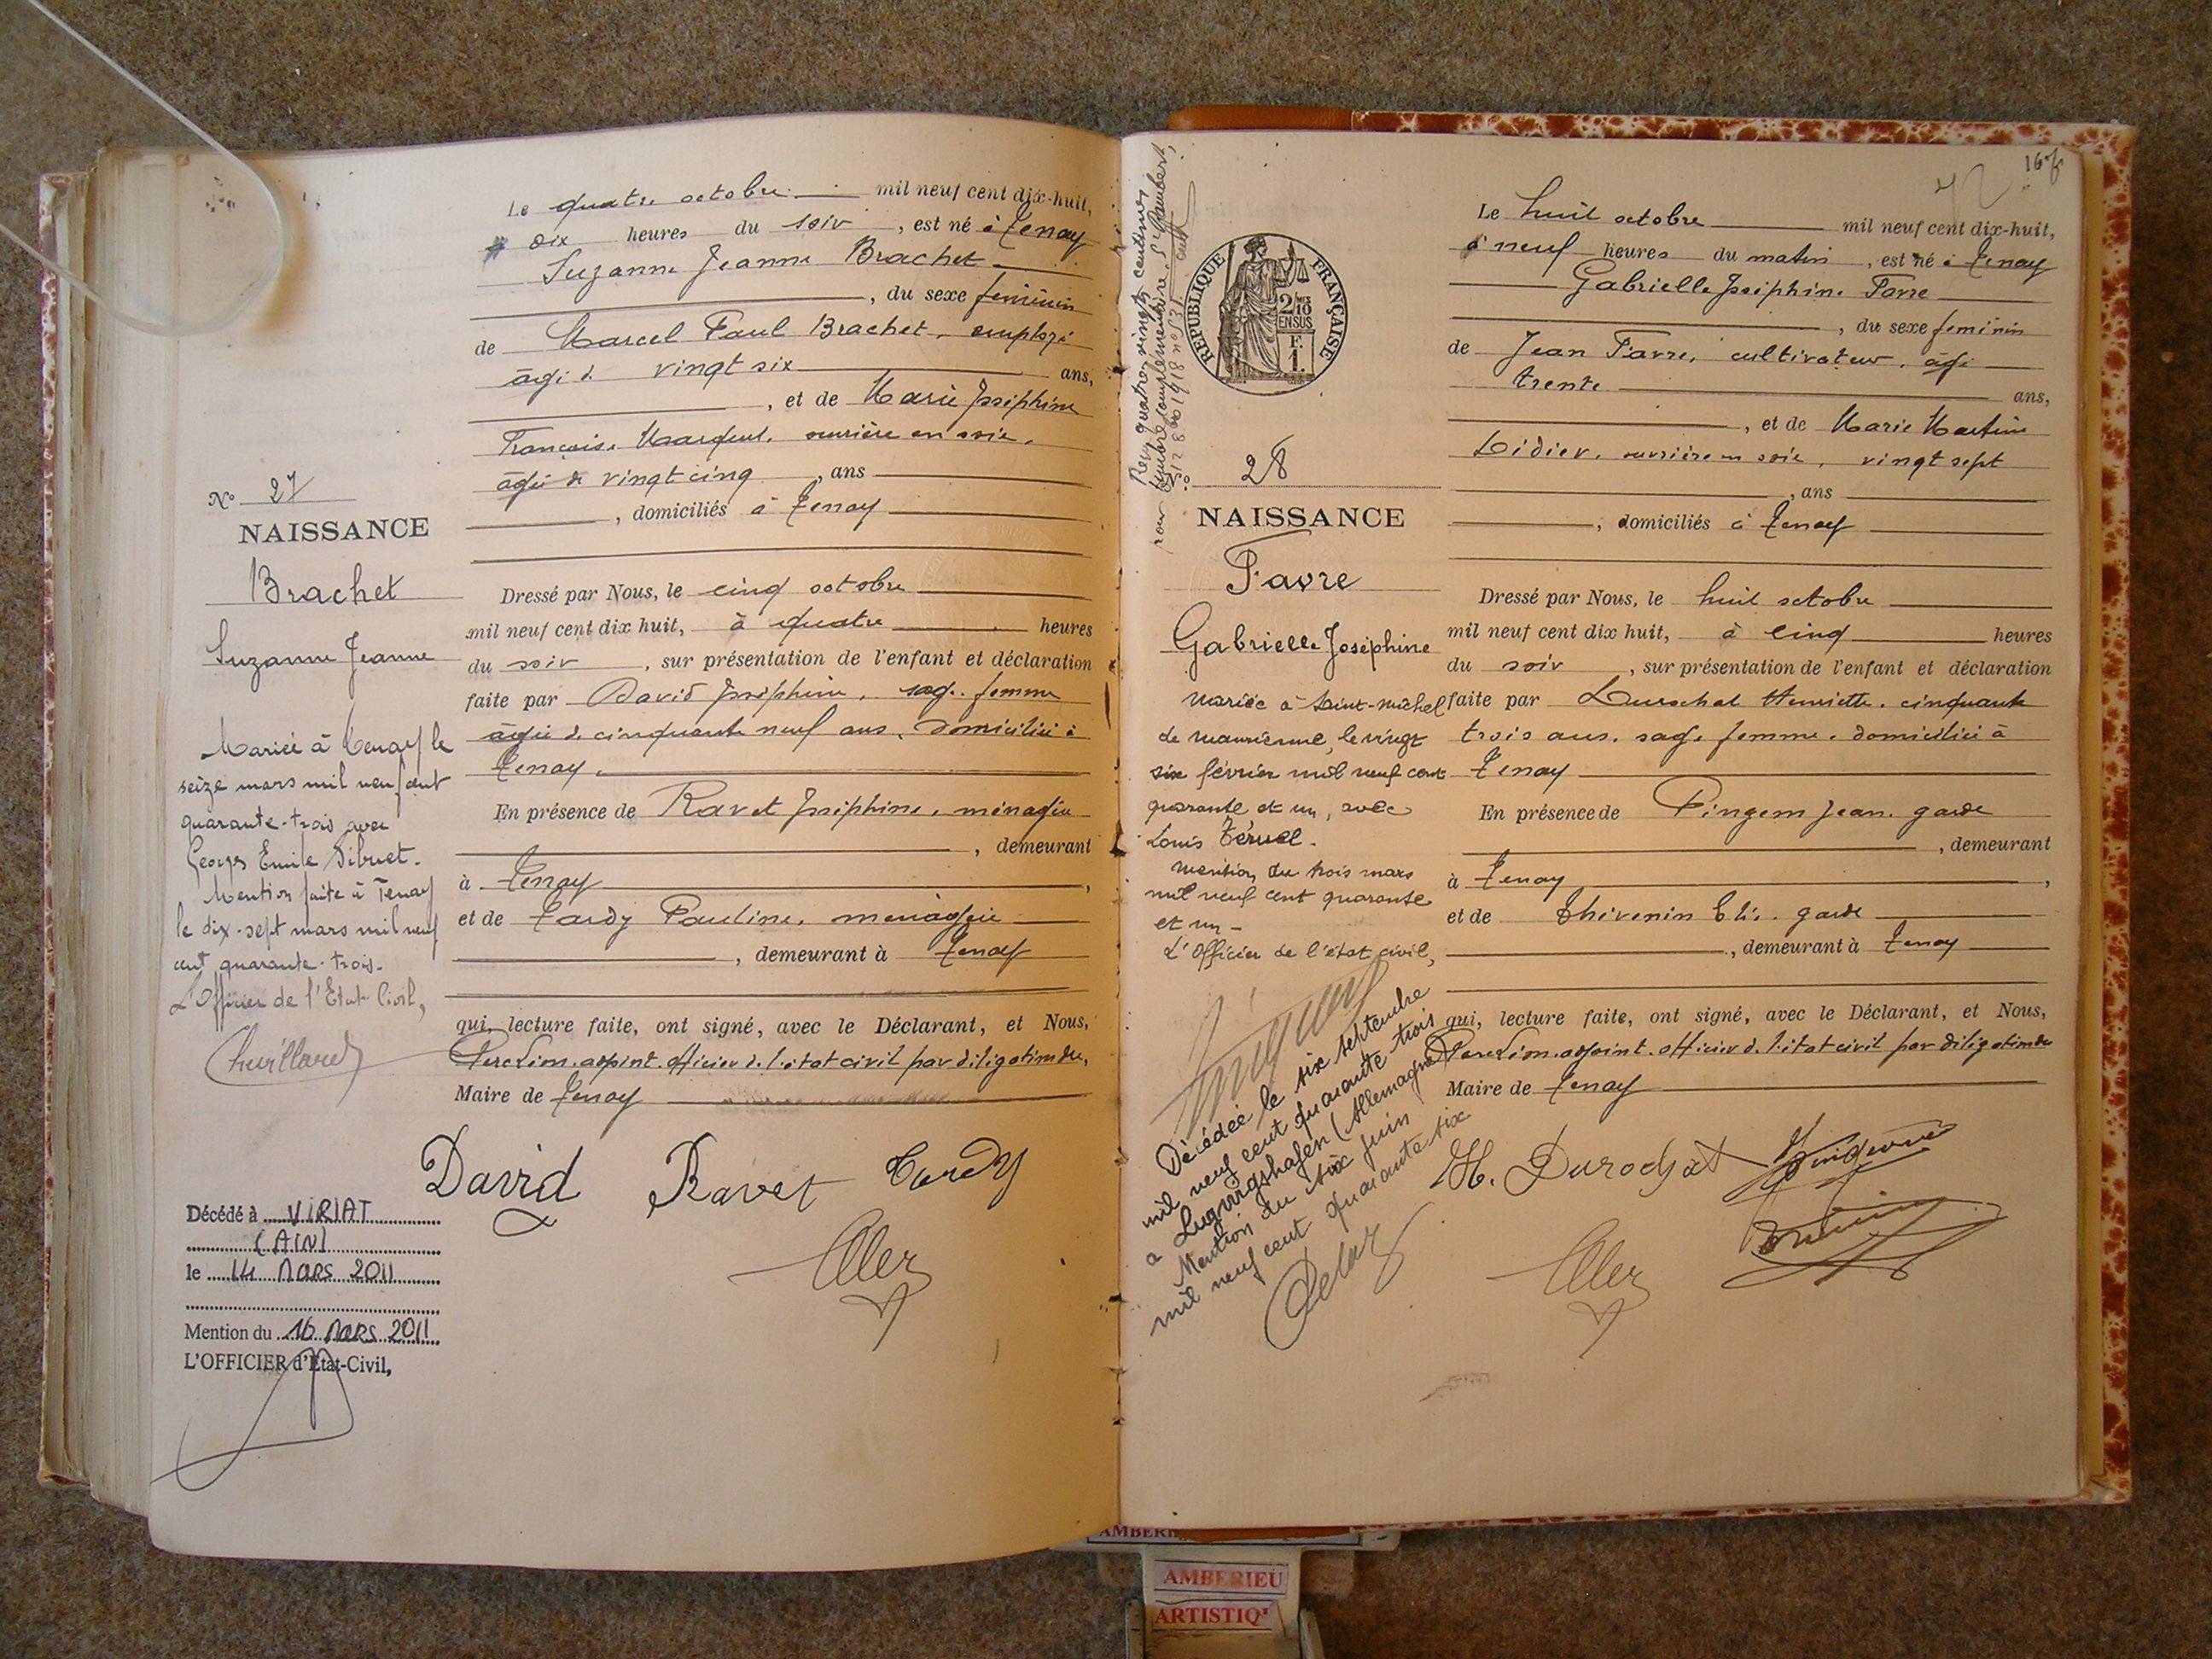 Le quatre octobre mil neuf cent dix-huit,
à dix heures du soir, est né à Tenay
Suzanne Jeanne Brachet
, du sexe féminin
de Marcel Paul Brachet, employé
âgé de vingt six ans,
, et de Marie Joséphine
Françoise, ouvrière en soie,
âgée de vingt cinq, ans
, domiciliés à Tenay
Nº 27
NAISSANCE
Brachet
Suzanne Jeanne
Dressé par Nous, le cinq octobre
mil neuf cent dix huit, à quatre heures
du soir, sur présentation de l'enfant et déclaration
faite par David Joséphine, sage femme
âgée de cinquante neuf ans, domiciliée à
Tenay,
En présence de Ravet Joséphine, ménagère
, demeurant
à Tenay,
et de Tardy Pauline, ménagère
, demeurant à Tenay
qui, lecture faite, ont signé, avec le Déclarant, et Nous,
adjoint officier de l'état civil par délégation du,
Maire de Tenay
Mariée à Tenay le
seize mars mil neuf cent
quarante-trois avec
Georges Emile Dibuet.
Mention faite à Tenay
le dix-sept mars mil neuf
cent quarante-trois.
L'Officier de l'Etat Civil,
David Ravet Tardy
Décédé à VIRIAT
(AIN)
le 14 MARS 2011
Mention du 16 MARS 2011
L'OFFICIER d'Etat-Civil,
167
72
Reçu quatre vingts centimes
pour timbre complémentaire, St Rambert,
RÉPUBLIQUE FRANÇAISE
2/10
EN SUS
F.
1.
Le huit octobre mil neuf cent dix-huit,
à neuf heures du matin, est né à Tenay
Gabrielle Joséphine Favre
, du sexe féminin
de Jean Favre, cultivateur, âgé
trente ans,
, et de Marie Martine
Didier, ouvrière en soie, vingt sept
, ans
, domiciliés à Tenay
Nº 28
NAISSANCE
Favre
Gabrielle Joséphine
Dressé par Nous, le huit octobre
mil neuf cent dix huit, à cinq heures
du soir, sur présentation de l'enfant et déclaration
faite par Henriette, cinquante
trois ans, sage femme, domiciliée à
Tenay
En présence de Jean, garde
, demeurant
à Tenay,
et de Thévenin, garde
, demeurant à Tenay
qui, lecture faite, ont signé, avec le Déclarant, et Nous,
adjoint officier de l'état civil par délégation du
Maire de Tenay
Mariée à Saint-Michel
de Maurienne, le vingt
six février mil neuf cent
quarante et un, avec
Louis Téruel.
Mention du trois mars
mil neuf cent quarante
et un -
L'Officier de l'état civil,
Décédée le six septembre
mil neuf cent quarante trois
à Lugwigshafen (Allemagne)
Mention du six juin
mil neuf cent quarante six
H. Durochat
AMBERIEU
ARTISTIQ'